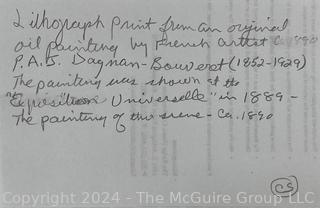 Lithograph print from an original
oil painting by French artist Ca 1890
P.A.J. Dagnan-Bouveret (1852-1929)
The painting was shown at the
"Exposition Universelle" in 1889 -
The painting of this scene - Ca. 1890
CS
Copyright 2024 - The McGuire Group LLC